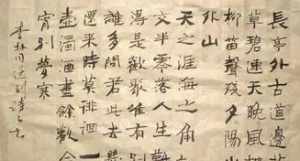 長亭外古道邊
草碧連天晚風
柳笛聲殘夕陽
外山
天之涯海之角
交半零落人生難
得是歡聚唯有別
離多問君此去
還來時莫徘徊一
壺濁酒盡餘歡今
宵別夢寒
李叔同送別詩